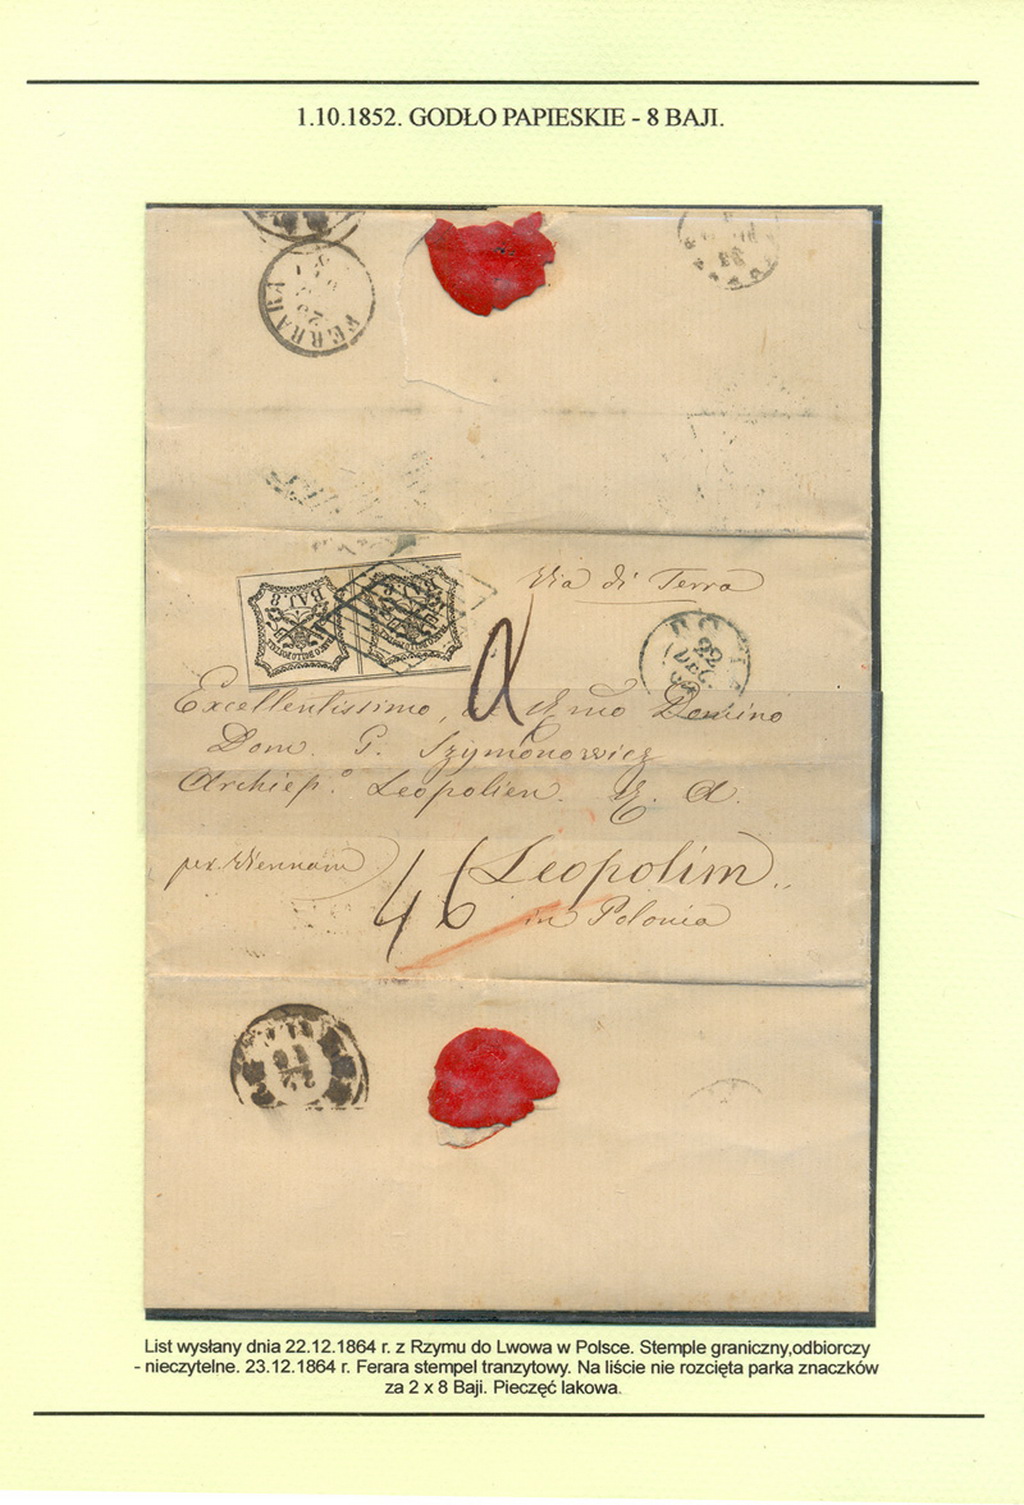 1.10.1852. GODŁO PAPIESKIE - 8 BAJI.
FERRARA
BAJ. 8
BAJ. 8
Via di Terra
22
DEC
Excellentissimo, ac Rmo Domino
Dom. G. Szymonowicz
Archiep.º Leopolien. R. A.
per Viennam
46
Leopolim
in Polonia
List wysłany dnia 22.12.1864 r. z Rzymu do Lwowa w Polsce. Stemple graniczny,odbiorczy
- nieczytelne. 23.12.1864 r. Ferara stempel tranzytowy. Na liście nie rozcięta parka znaczków
za 2 x 8 Baji. Pieczęć lakowa.